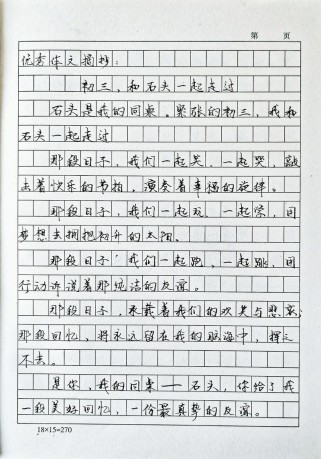 第 页
优秀作文摘抄：
初三，和石头一起走过
石头是我的同桌。紧张的初三，我和
石头一起走过
那段日子，我们一起笑，一起哭，敲
击着快乐的节拍，演奏着幸福的旋律。
那段日子，我们一起玩，一起荣，同
梦想去拥抱初升的太阳。
那段日子，我们一起跑，一起跳，用
行动诉说着那纯洁的友谊。
那段日子，承载着我们的欢笑与悲哀；
那段回忆，将永远留在我的脑海中，挥之
不去。
是你，我的同桌——石头，你给了我
一段美好回忆，一份最真挚的友谊。
18×15=270